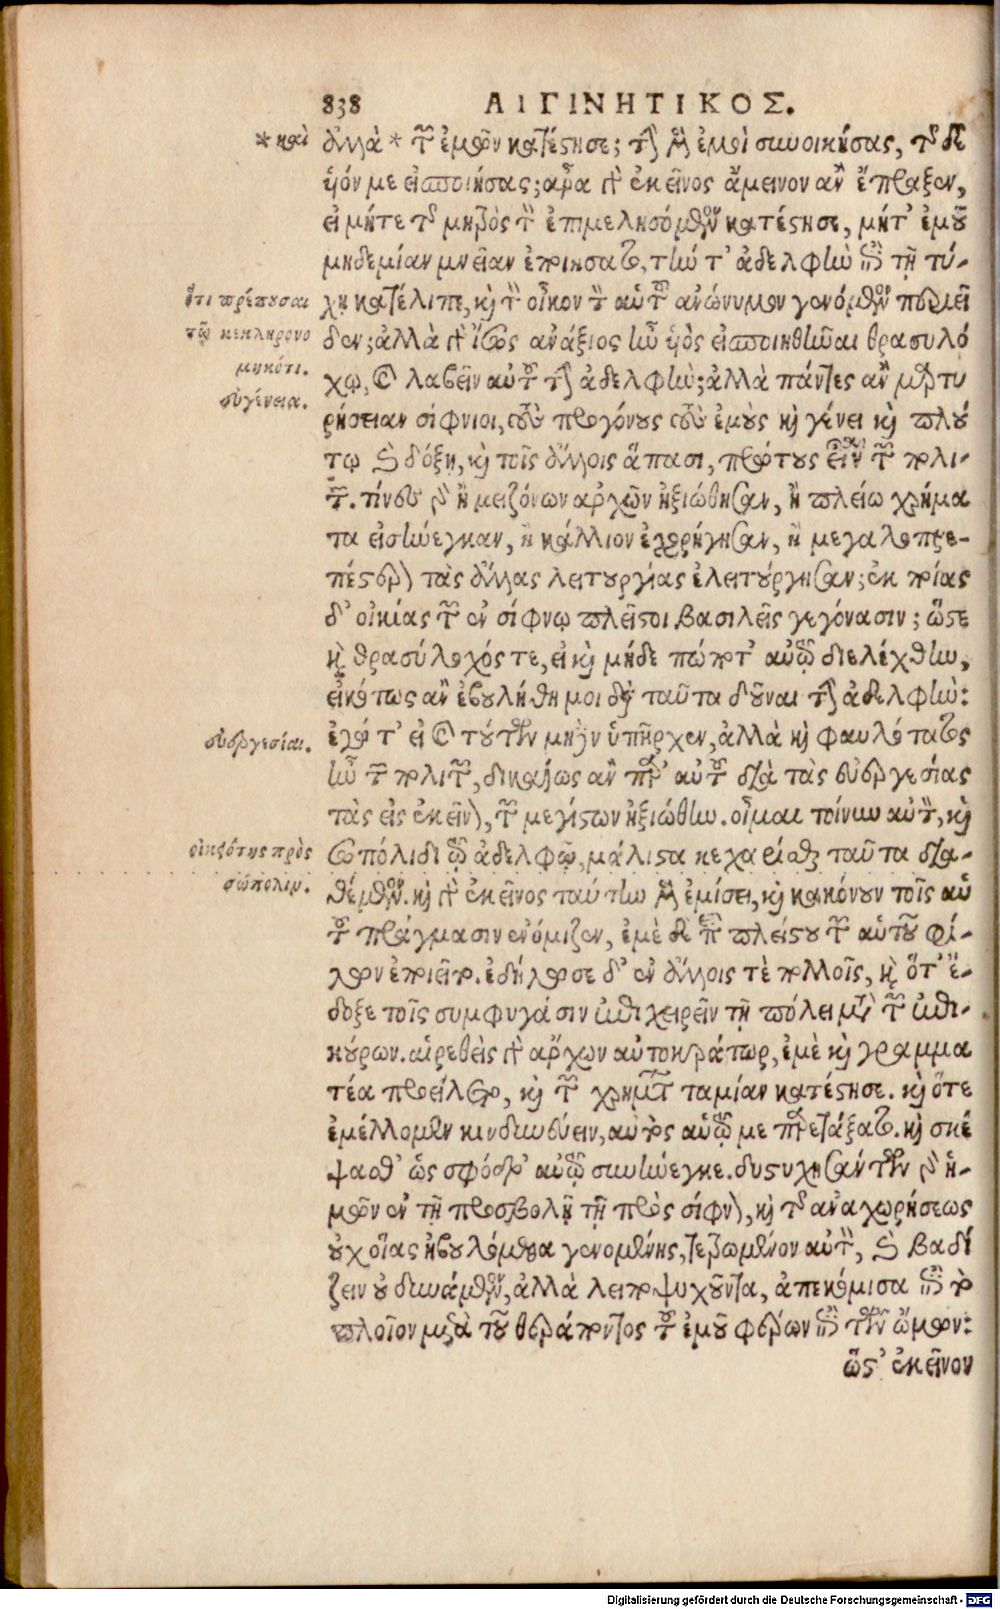 838 ΑΙΓΙΝΗΤΙΚΟΣ.
* καὶ
ἀλλὰ * τῶν ἐμῶν κατέστησε; τῇ μὲν ἐμοὶ συνοικήσας, τὸν δὲ
υἱόν με εἰσποιήσας; ἆρα γὰρ ἐκεῖνος ἄμεινον ἂν ἔπραξεν,
εἰ μήτε τῆς μητρὸς τὸν ἐπιμελησόμενον κατέστησε, μήτ' ἐμοῦ
μηδεμίαν μνείαν ἐποιήσατο, τήν τ' ἀδελφὴν ἐπὶ τῇ τύ-
χῃ κατέλιπε, καὶ τὸν οἶκον τὸν αὑτοῦ ἀνώνυμον γενόμενον περιεῖ
δεν; ἀλλὰ γὰρ ἴσως ἀνάξιος ἦν υἱὸς εἰσποιηθῆναι θρασυλό
χῳ, καὶ λαβεῖν αὐτοῦ τὴν ἀδελφήν; ἀλλὰ πάντες ἂν μαρτυ
ρήσειαν σίφνιοι, τοὺς προγόνους τοὺς ἐμοὺς καὶ γένει καὶ πλού
τῳ καὶ δόξῃ, καὶ τοῖς ἄλλοις ἅπασι, πρώτους εἶναι τῶν πολι-
τῶν. τίνες γὰρ ἢ μειζόνων ἀρχῶν ἠξιώθησαν, ἢ πλείω χρήμα
τα εἰσήνεγκαν, ἢ κάλλιον ἐχορήγησαν, ἢ μεγαλοπρε-
πέστερον τὰς ἄλλας λειτουργίας ἐλειτούργησαν; ἐκ ποίας
δ' οἰκίας τῶν ἐν σίφνῳ πλεῖστοι βασιλεῖς γεγόνασιν; ὥστε
καὶ θρασύλοχός τε, εἰ καὶ μήδε πώποτ' αὐτῷ διελέχθην,
εἰκότως ἂν ἐβουλήθη μοι διὰ ταῦτα δοῦναι τὴν ἀδελφήν:
ἐγώ τ' εἰ καὶ τούτων μηδὲν ὑπῆρχεν, ἀλλὰ καὶ φαυλότατος
ἦν τῶν πολιτῶν, δικαίως ἂν παρ' αὐτοῦ διὰ τὰς εὐεργεσίας
τὰς εἰς ἐκεῖνον, τῶν μεγίστων ἠξιώθην. οἶμαι τοίνυν αὐτὸν, καὶ
Σωπόλιδι τῷ ἀδελφῷ, μάλιστα κεχαρίσθαι ταῦτα δια-
θέμενον. καὶ γὰρ ἐκεῖνος ταύτην μὲν ἐμίσει, καὶ κακόνουν τοῖς αὑ
τοῦ πράγμασιν ἐνόμιζεν, ἐμὲ δὲ περὶ πλείστου τῶν αὑτοῦ φί-
λων ἐποιεῖτο. ἐδήλωσε δ' ἐν ἄλλοις τὲ πολλοῖς, καὶ ὅτ' ἔ-
δοξε τοῖς συμφυγάσιν ἐπιχειρεῖν τῇ πόλει μετὰ τῶν ἐπι-
κούρων. αἱρεθεὶς γὰρ ἄρχων αὐτοκράτωρ, ἐμὲ καὶ γραμμα
τέα προείλετο, καὶ τῶν χρημάτων ταμίαν κατέστησε. καὶ ὅτε
ἐμέλλομεν κινδυνεύειν, αὐτὸς αὑτῷ με παρετάξατο. καὶ σκέ
ψασθ' ὡς σφόδρ' αὐτῷ συνήνεγκε. δυστυχησάντων γὰρ ἡ-
μῶν ἐν τῇ προσβολῇ τῇ πρὸς σίφνον, καὶ τῆς ἀναχωρήσεως
οὐχ οἵας ἠβουλόμεθα γενομένης, τετρωμένον αὐτὸν, καὶ βαδί
ζειν οὐ δυνάμενον, ἀλλὰ λειποψυχοῦντα, ἀπεκόμισα ἐπὶ τὸ
πλοῖον μετὰ τοῦ θεράποντος τοῦ ἐμοῦ φέρων ἐπὶ τῶν ὤμων:
ὥστ' ἐκεῖνον
ὅτι πρέπουσαι
τῷ κεκληρονο
μηκότι.
συγένεια.
εὐεργεσίαι.
οἰκειότης πρὸς
σώπολιν.
Digitalisierung gefördert durch die Deutsche Forschungsgemeinschaft - DFG